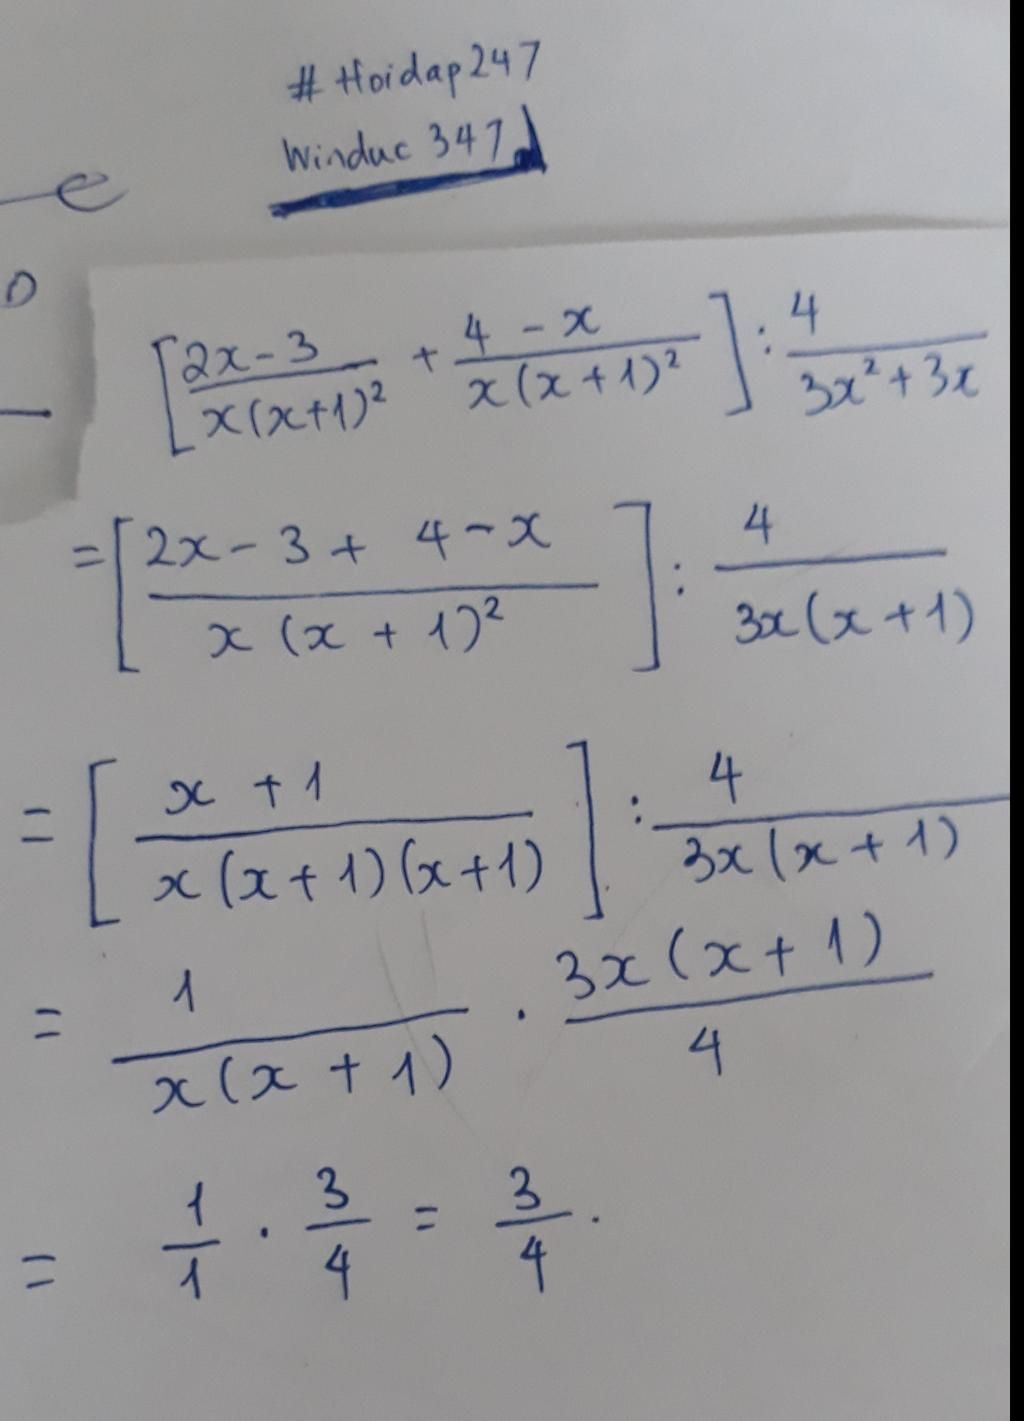 # Hoidap247
Winduc 347
e
D
[(2x-3)/(x(x+1)²) + (4-x)/(x(x+1)²)] : 4/(3x²+3x)
= [(2x-3+4-x)/(x(x+1)²)] : 4/(3x(x+1))
= [(x+1)/(x(x+1)(x+1))] : 4/(3x(x+1))
= 1/(x(x+1)) . (3x(x+1))/4
= 1/1 . 3/4 = 3/4.